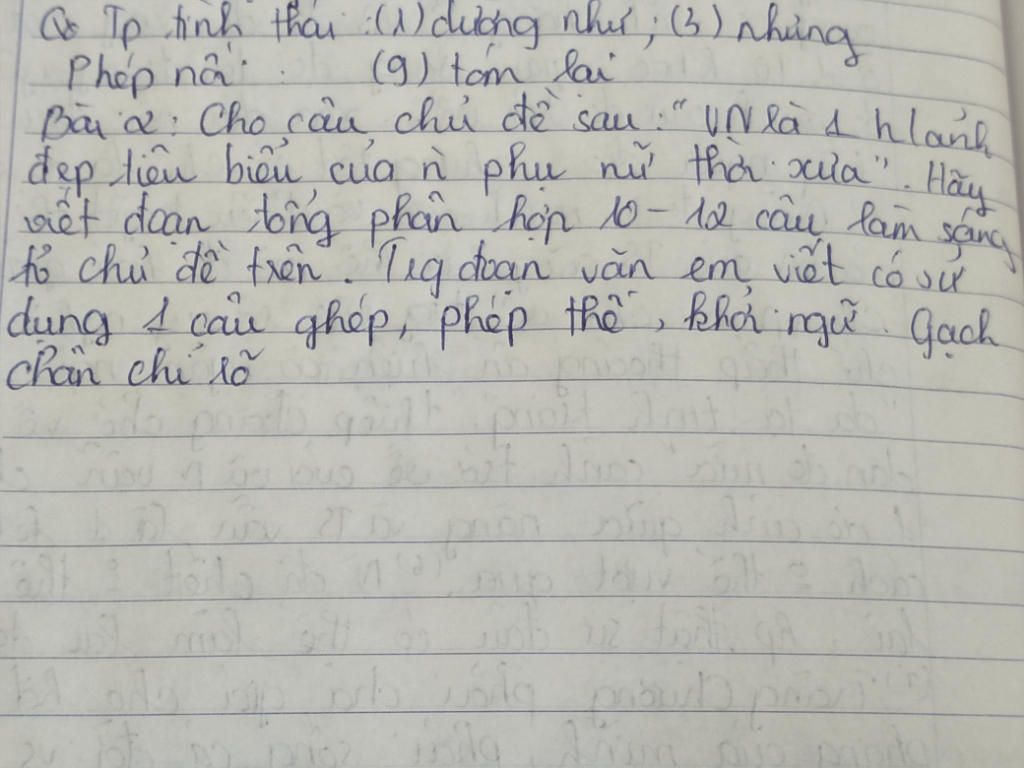 Tp tình thái : (1) dường như ; (3) nhưng
Phép nối : (9) tóm lại
Bài 2 : Cho câu chủ đề sau : "VN là 1 h/ảnh
đẹp tiêu biểu của n̂ phụ nữ thời xưa". Hãy
viết đoạn tổng phân hợp 10-12 câu làm sáng
tỏ chủ đề trên. Trg đoạn văn em viết có sử
dụng 1 câu ghép, phép thế, khởi ngữ. Gạch
chân chỉ rõ